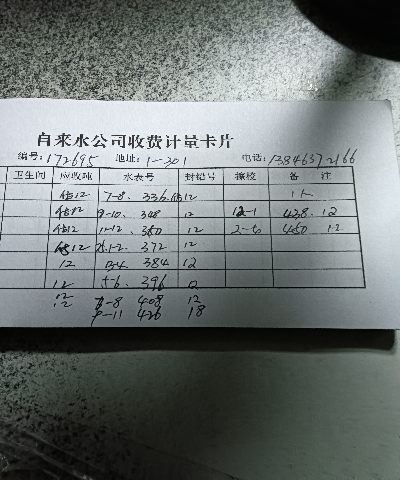 自来水公司收费计量卡片
编号:172695 地址:1-301 电话:13846372166
卫生间 应收吨 水表号 封铅号 接校 备 注
估12 7-8. 336 估12
估12 9-10. 348 12 12-1 438. 12
估12 11-12 360 12 450 12
估12 1-2. 372 12
12 3-4 384 12
12 5-6. 396 12
12 7-8 408 12
12 9-11 426 18